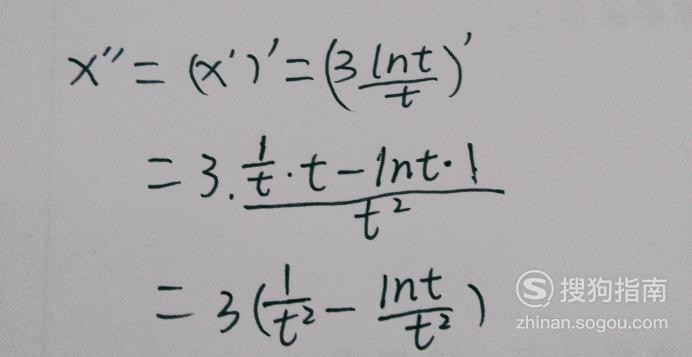 x'' = (x')' = (3 lnt/t)'
= 3 · (1/t · t - lnt · 1)/t²
= 3(1/t² - lnt/t²)
S 搜狗指南
zhinan.sogou.com